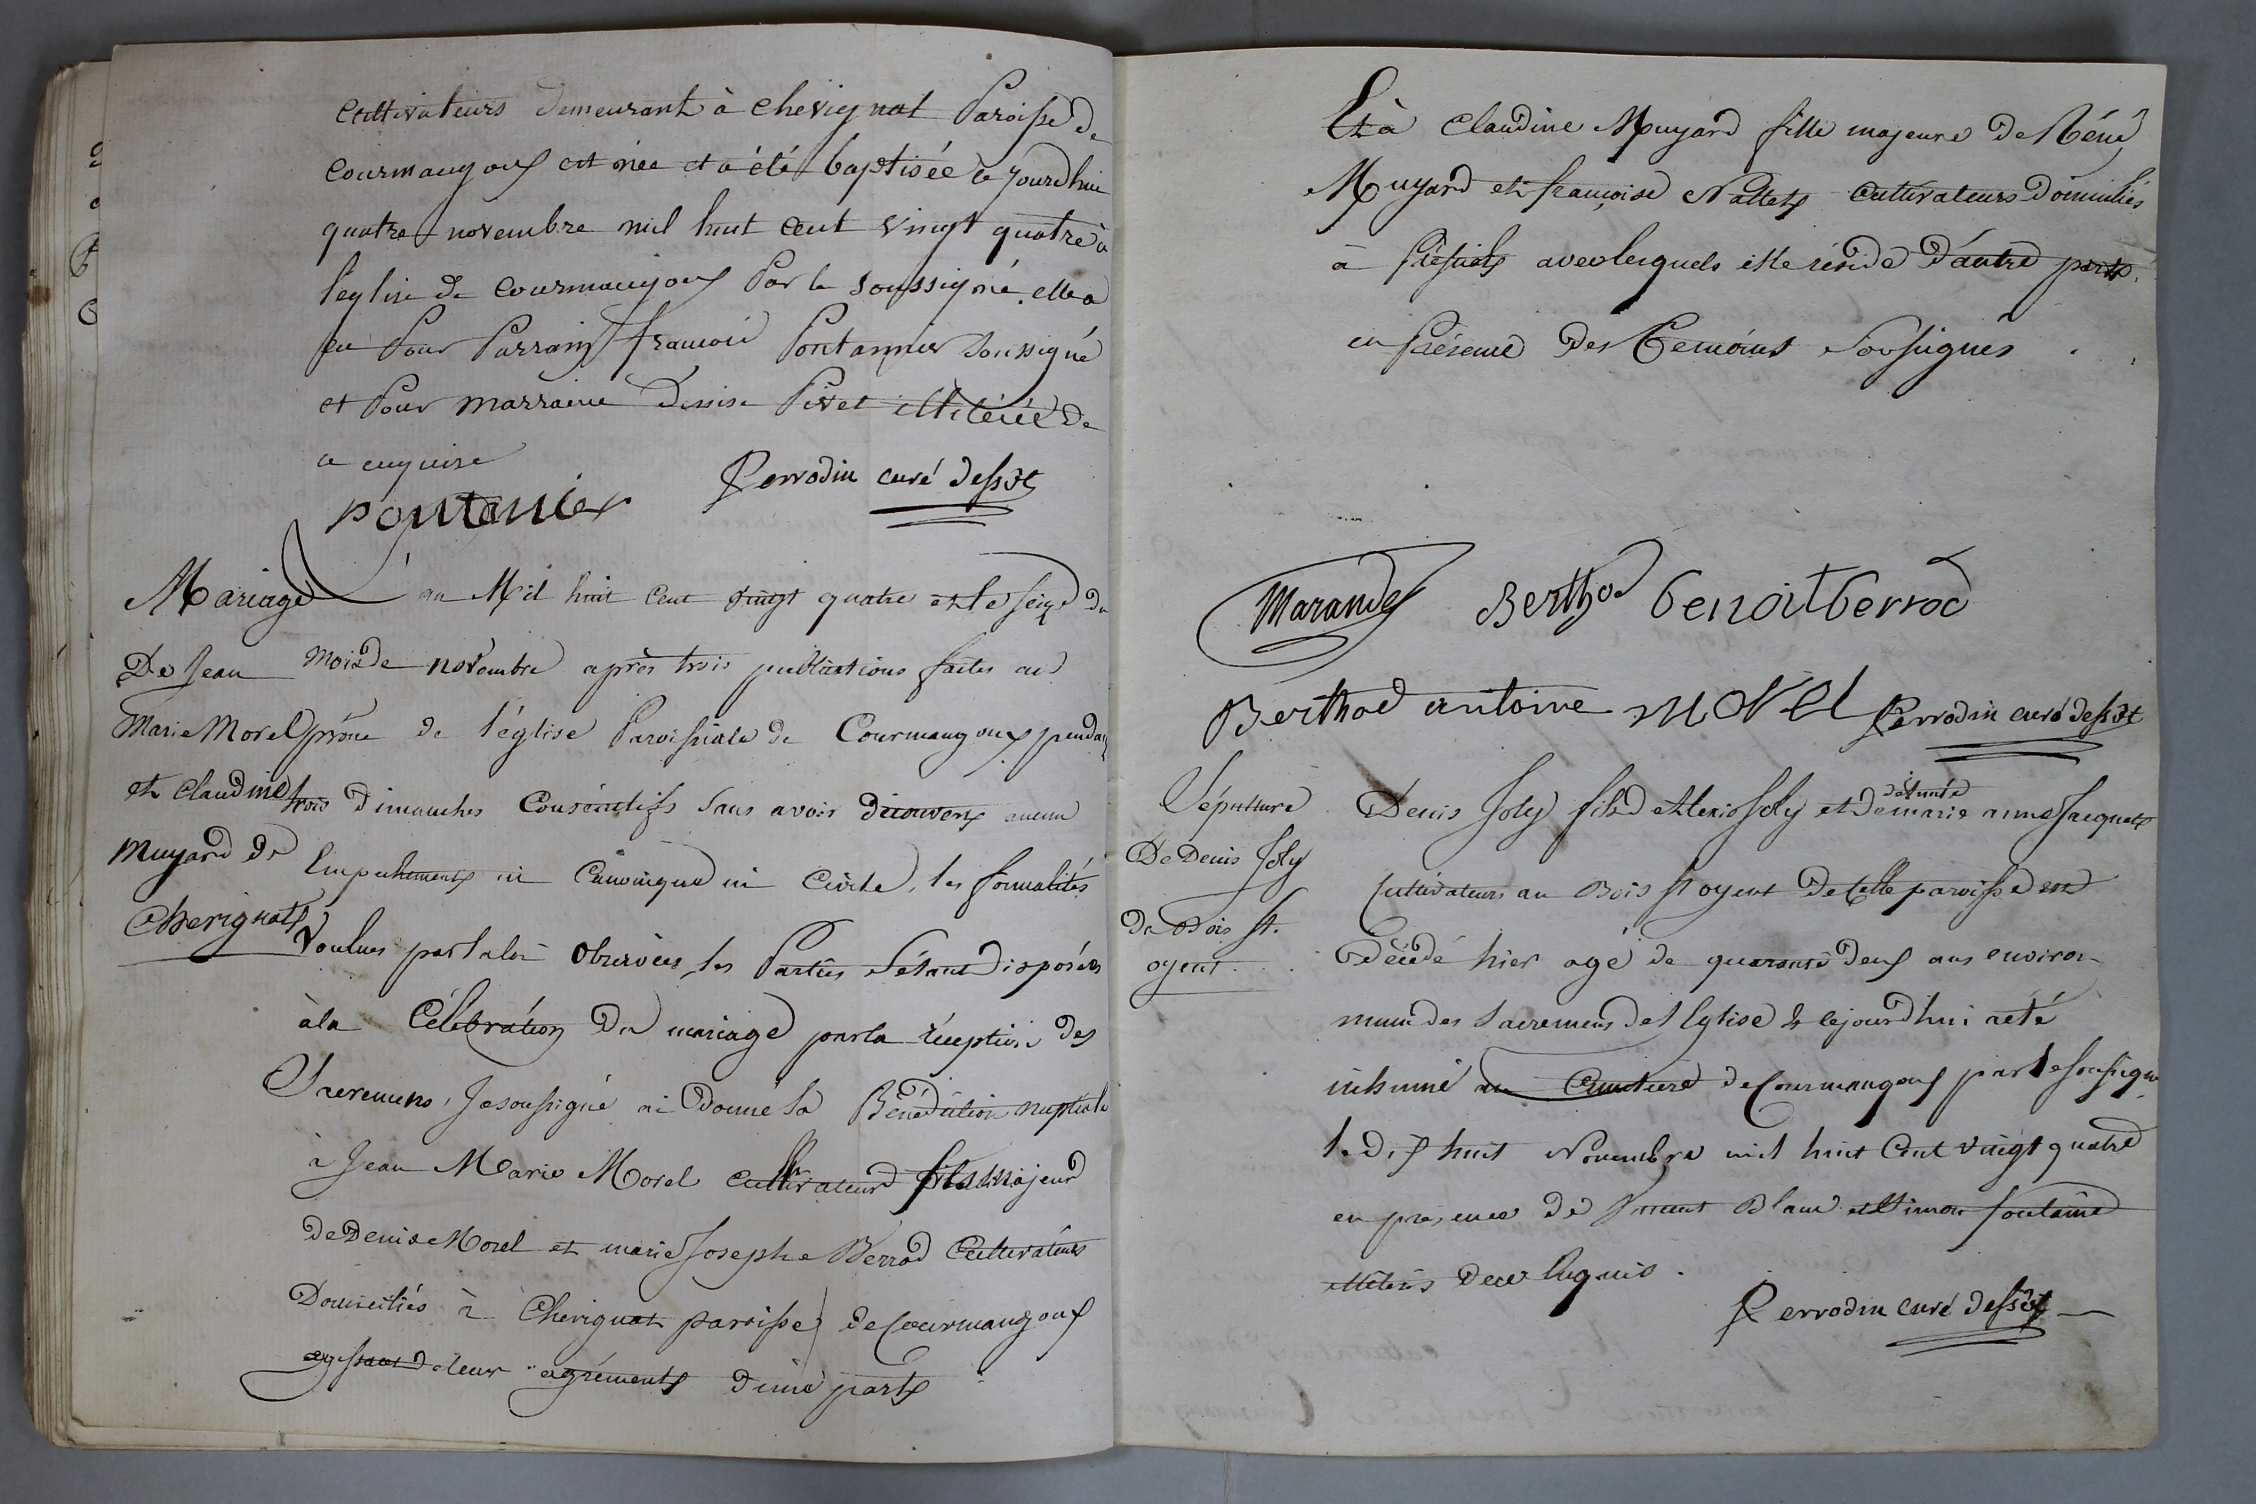 cultivateurs demeurant à chevignat Paroisse de
courmangoux est née et a été baptisée ce jourdhui
quatre novembre mil huit cent vingt quatre à
l'eglise de courmangoux Par le soussigné. elle a
eu Pour Parrain françois Pontannier soussigné
et Pour marraine Denise Pivet illitérée de
ce enquise
Perrodin curé dessvt
pontanier
Mariage
De Jean
Marie Morel
et Claudine
Muyard de
Chevignat
L'an Mil huit cent vingt quatre et le seize du
mois de novembre après trois publications faites au
prône de l'église Paroissiale de Courmangoux pendant
trois Dimanches Consécutifs sans avoir découvert aucun
Empechement ni Canonique ni Civile, les formalités
voulues par la loi observées, les Parties s'étant disposées
à la Célébration du mariage par la réception des
Sacremens, Je soussigné ai donné la Bénédiction nuptiale
à Jean Marie Morel cultivateur fils majeur
de Denis Morel et marie Josephe Berrod Cultivateurs
Domiciliés à Chevignat paroisse de Courmangoux
agissant de leur agrément d'une part
Et à Claudine Muyard fille majeure de Réné
Muyard et françoise Nallet Cultivateurs Domiciliés
à Préssiat avec lesquels elle réside d'autre part.
en Présence des Temoins Soussignés
Marand Berthod benoit berrod
Berthod antoine morel Perrodin curé dessvt
Sépulture
De Denis Joly
du Bois St.
oyent.
défunte
Denis Joly fils d'Alexis Joly et de marie anne Jacquet
Cultivateurs au Bois St oyent de Cette paroisse est
Décédé hier agé de quarante deux ans environ
muni des Sacremens de l'Eglise & cejourd'hui a été
inhumé au Cimetiere de Courmangoux par le soussigné
le dix huit Novembre mil huit Cent vingt quatre
en presence de Vincent Blanc et Simon fontaine
illiterés de ce Enquis.
Perrodin curé dessvt